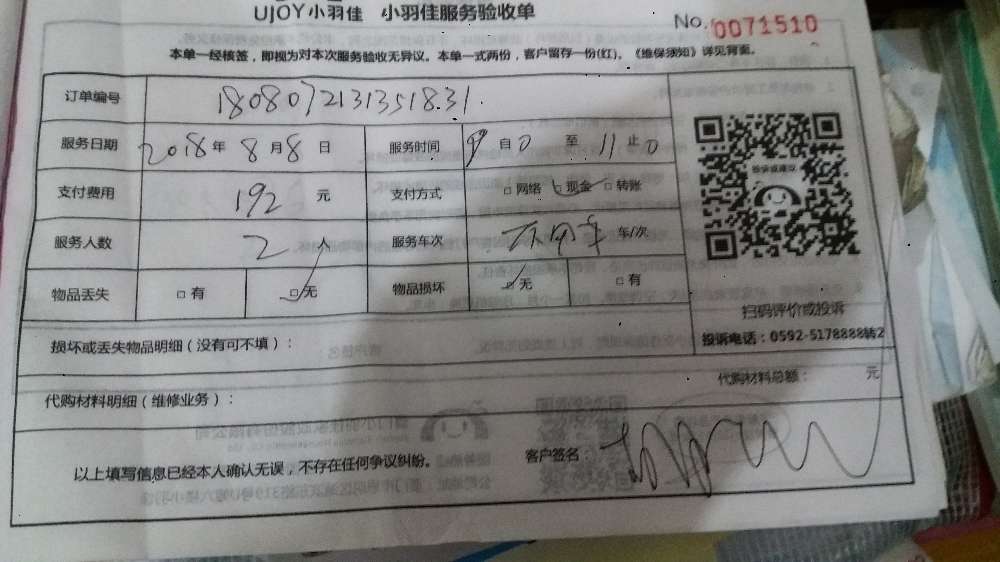 UJOY小羽佳 小羽佳服务验收单
No. 0071510
本单一经核签，即视为对本次服务验收无异议。本单一式两份，客户留存一份(红)。《维保须知》详见背面。
订单编号 18080721313518.31
服务日期 2018年8月8日 服务时间 9自0至11止0
支付费用 192元 支付方式 □网络 □现金 □转账
服务人数 2人 服务车次 车/次
物品丢失 □有 □无 物品损坏 □无 □有
扫码评价或投诉
投诉电话：0592-5178888转2
损坏或丢失物品明细（没有可不填）：
代购材料总额： 元
代购材料明细（维修业务）：
以上填写信息已经本人确认无误，不存在任何争议纠纷。 客户签名：